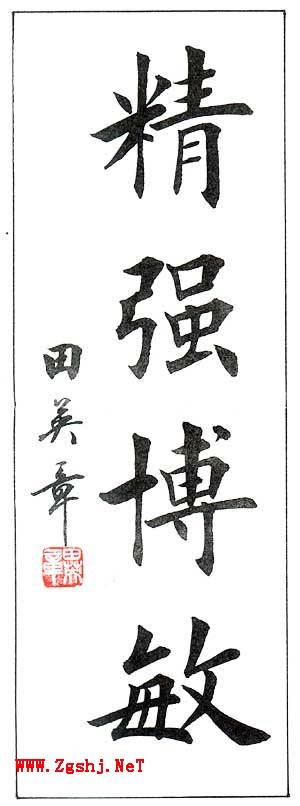 精强博敏
田英章
田英章
www.Zgshj.NeT